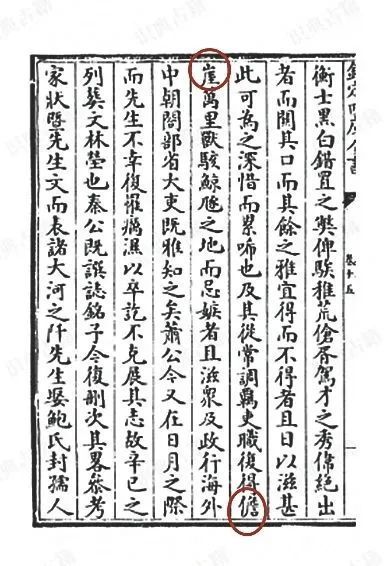 欽定四庫全書
卷十五
衡士黑白錯置之弊俾騃雅荒傖吝駕才之秀偉絕出
者而關其口而其餘之雅宜得而不得者且日以滋甚
此可為之深惜而累唏也及其從常調羈吏職復得儋
崖萬里獸駭鯨之地而忌嫉者且滋衆及政行海外
中朝閤部省大吏既雅知之矣蕭公今又在日月之際
而先生不幸復罹癘濕以卒訖不克展其志故辛巳之
列葬文林塋也秦公既譔誌銘子今復刪次其畧叅考
家狀暨先生文而表諸大河之阡先生娶鮑氏封孺人
识典古籍